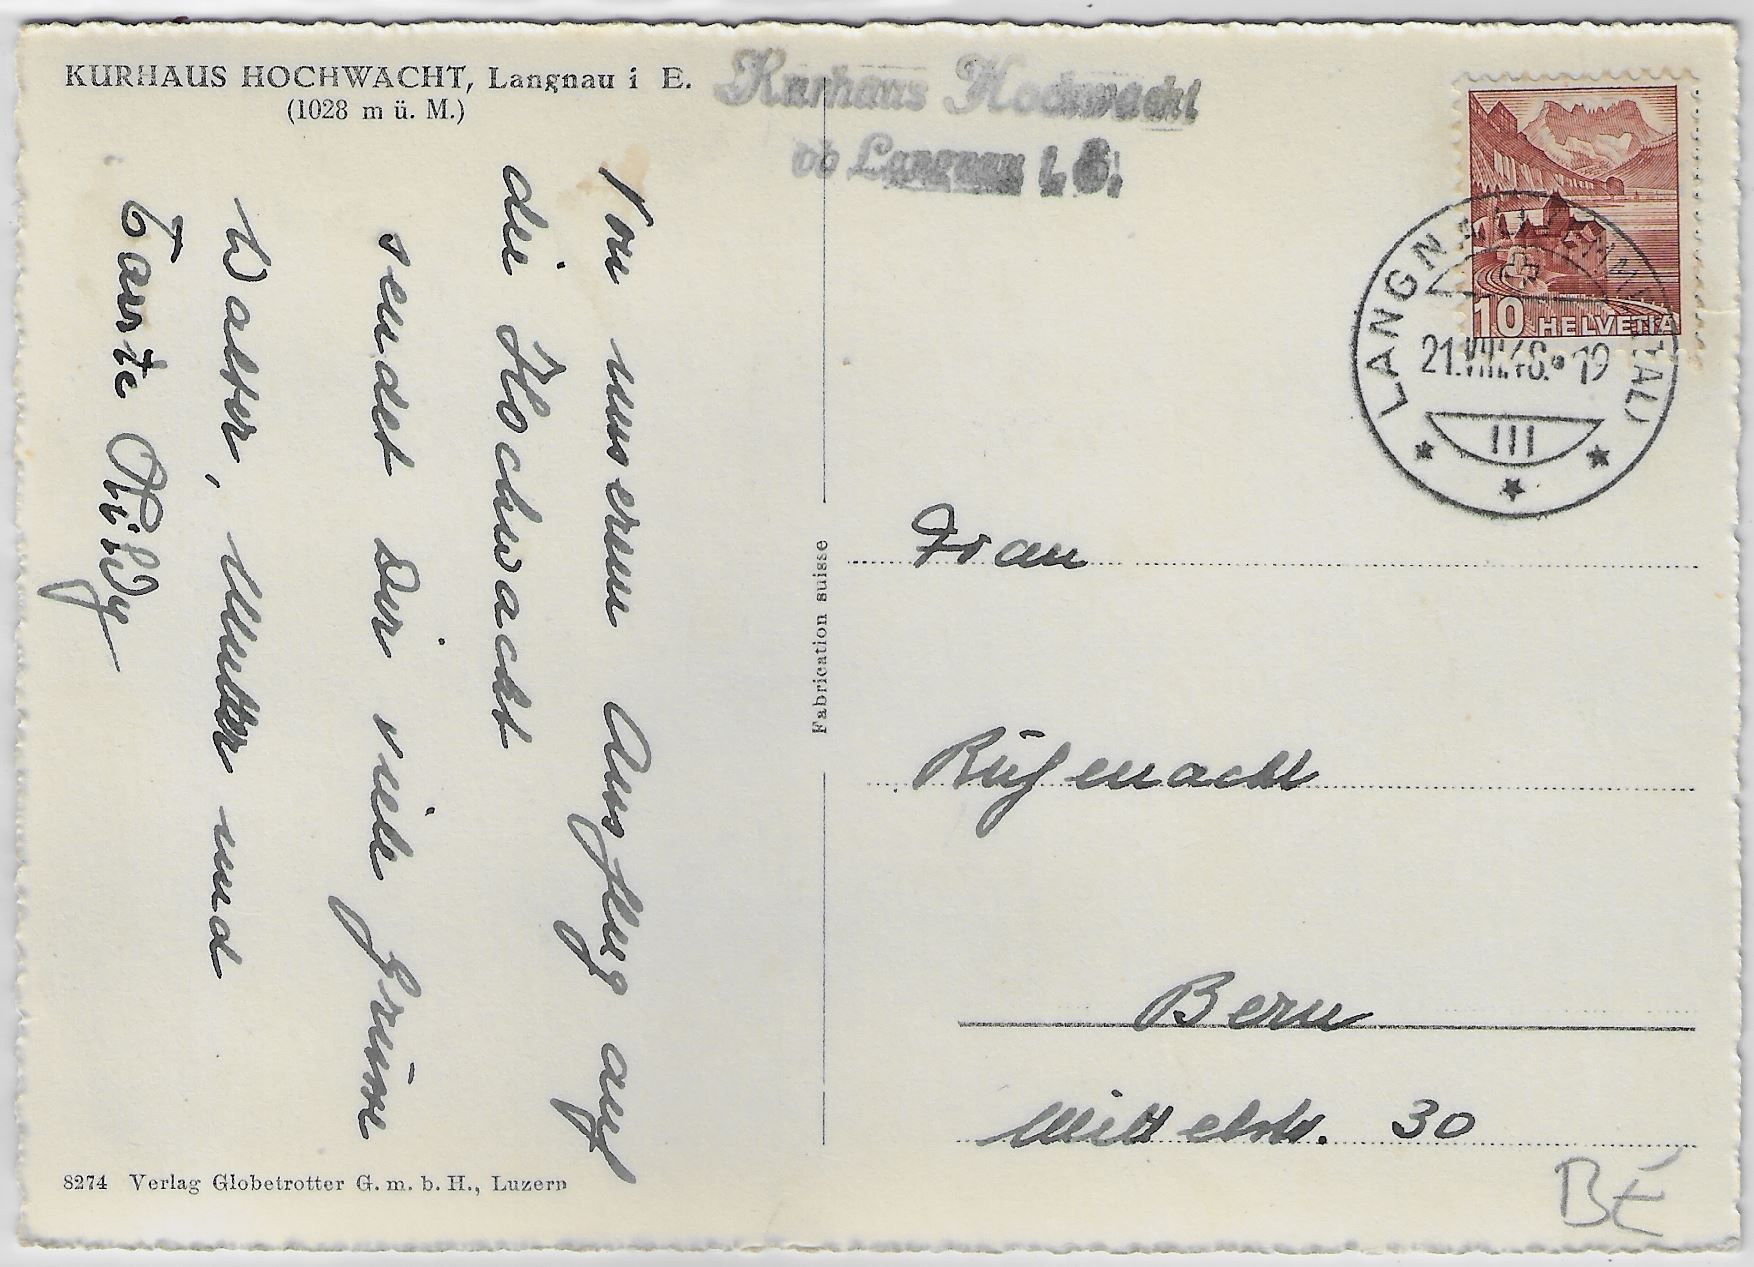 KURHAUS HOCHWACHT, Langnau i E.
(1028 m ü. M.)
Kurhaus Hochwacht
ob Langnau i. E.
Von unserem Ausflug auf
die Hochwacht
sendet Dir viele Grüsse
Walter, Mutter und
Tante Hildy
Fabrication suisse
10 HELVETIA
LANGNAU (EMMENTAL)
21.VIII.48.-19
III
Frau
Rüfenacht
Bern
Mittelstr. 30
8274 Verlag Globetrotter G. m. b. H., Luzern
BE